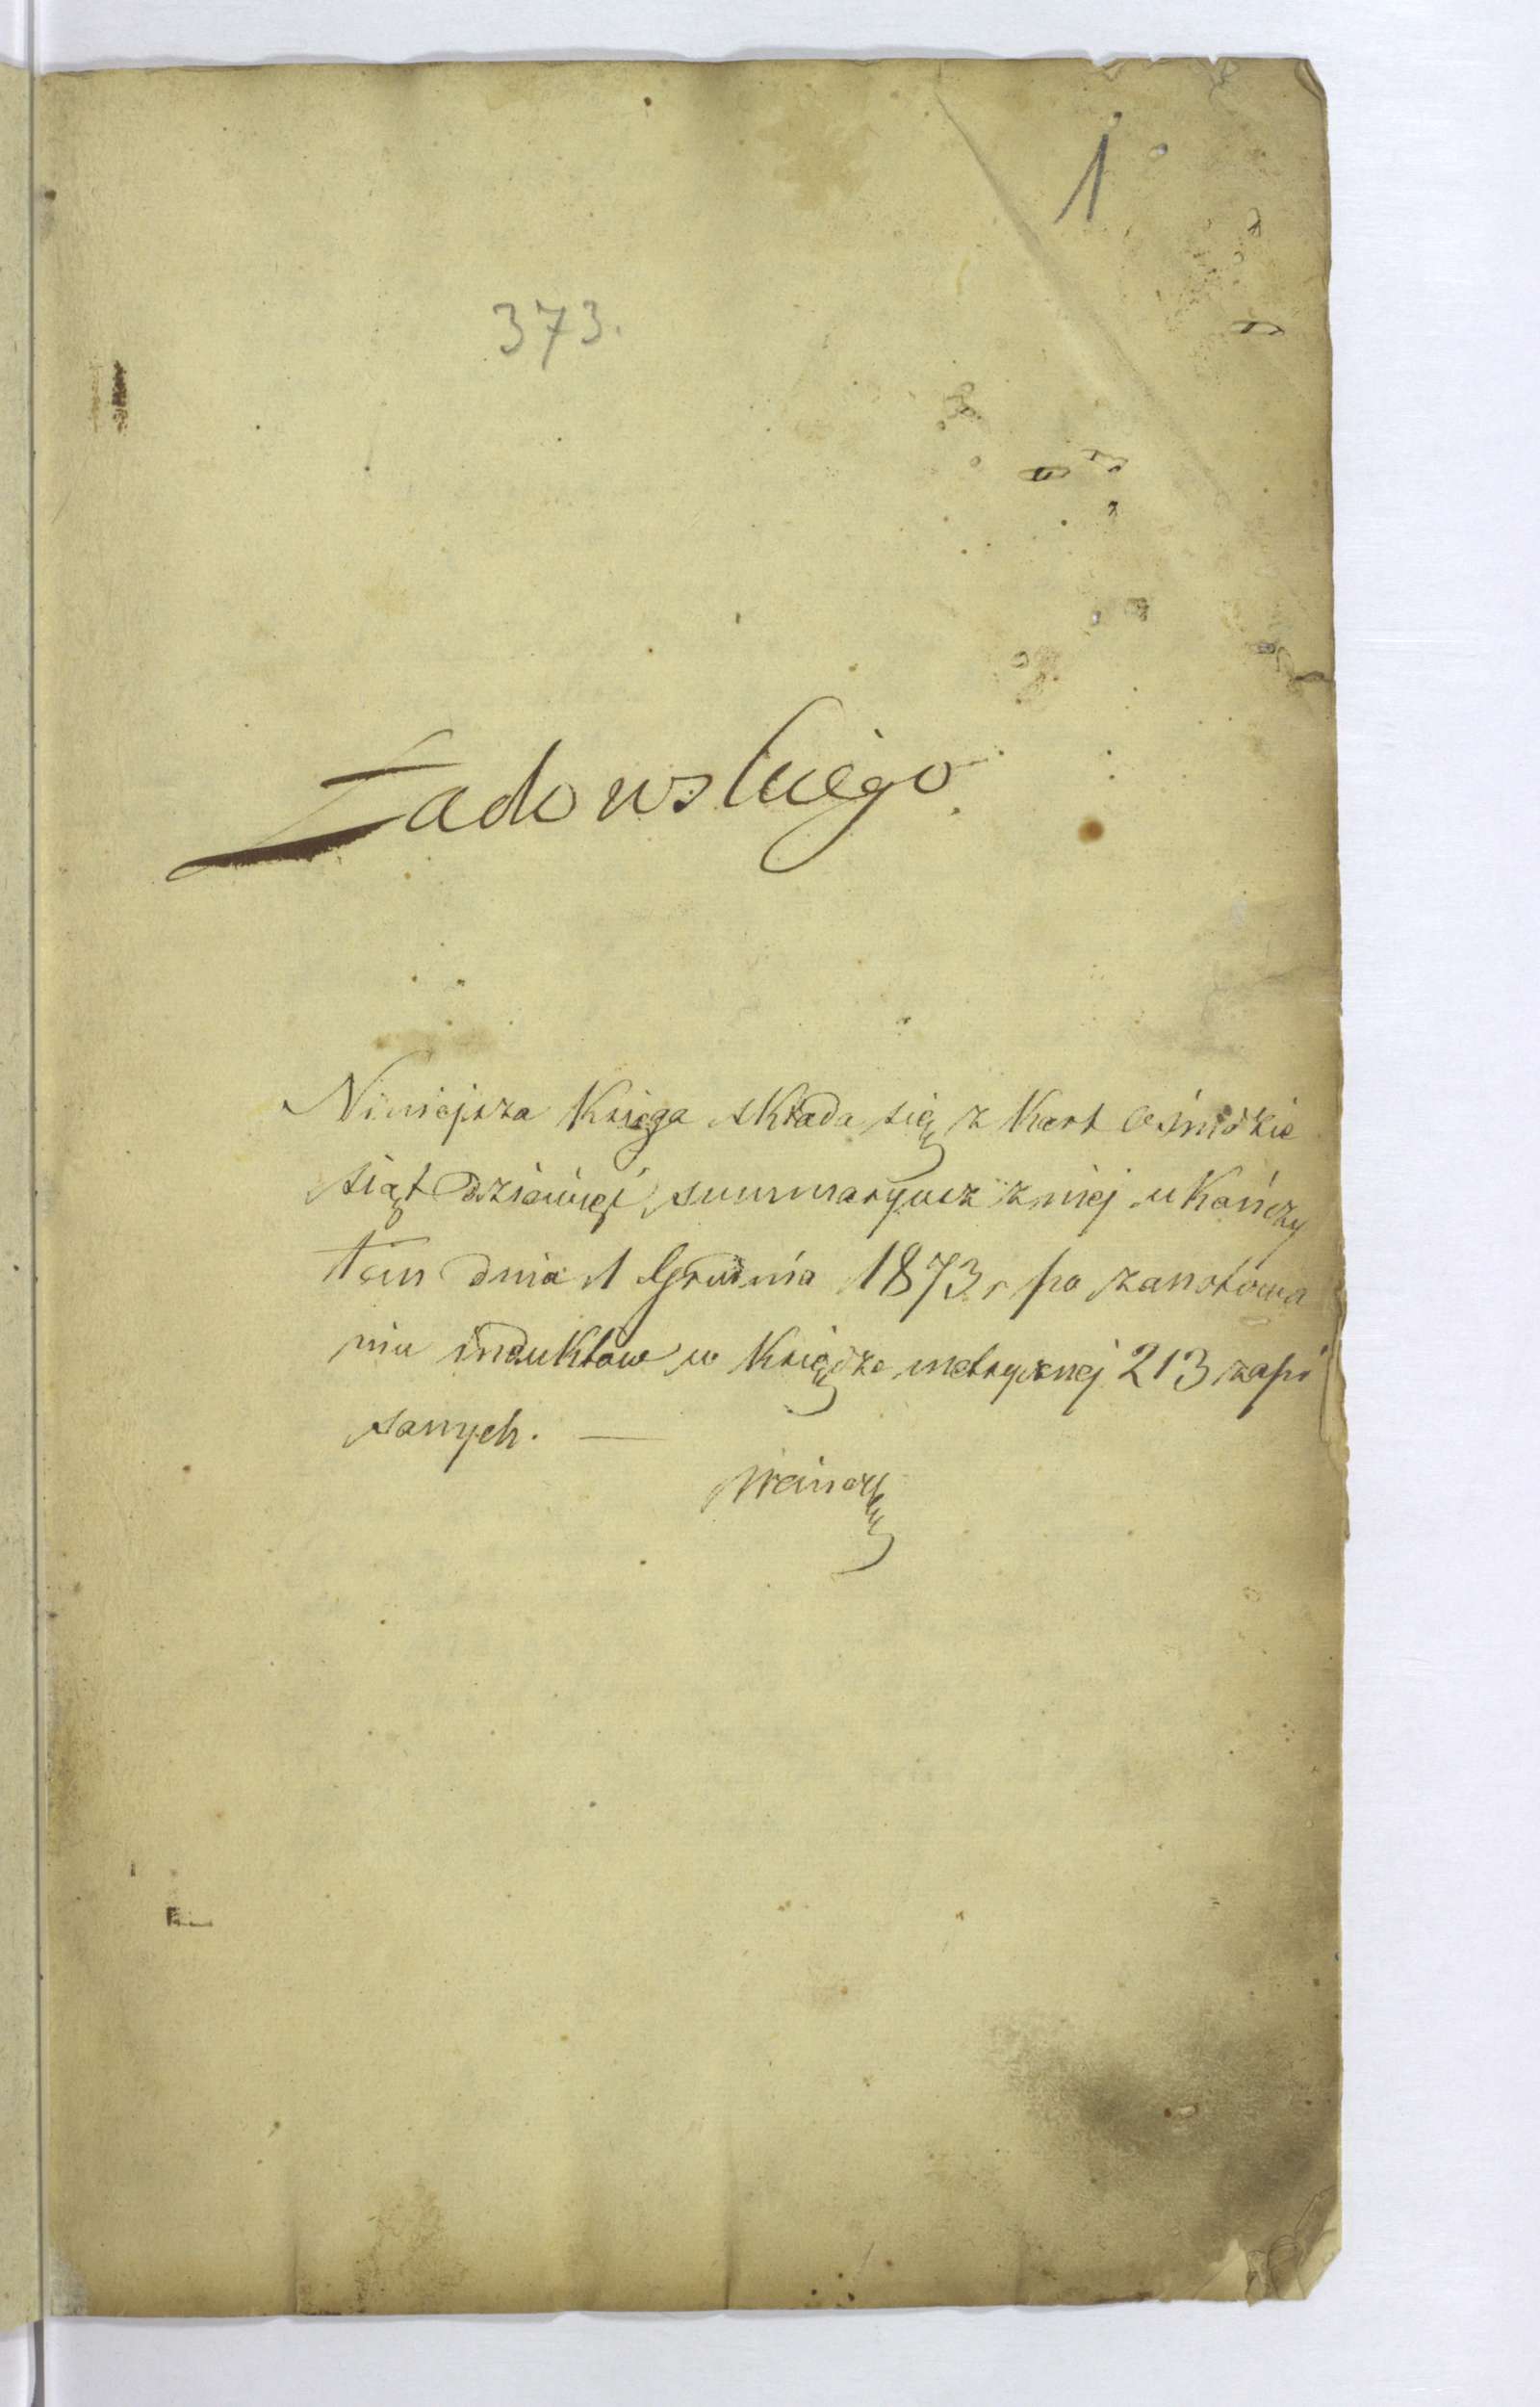 1
373.
Żadowskiego
Niniejsza Księga składa się z Kart Ośmdzie
siąt Dziewięć, summaryusz z niej ukończy
łem dnia 1 Grudnia 1873 r po zanotowa
niu induktów w Księdze metrycznej 213 zapi
sanych. —